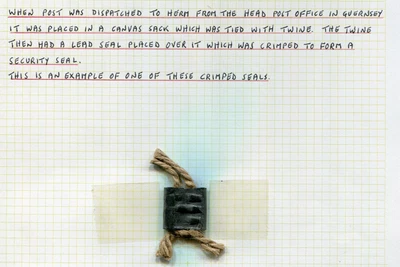 WHEN POST WAS DISPATCHED TO HERM FROM THE HEAD POST OFFICE IN GUERNSEY
IT WAS PLACED IN A CANVAS SACK WHICH WAS TIED WITH TWINE. THE TWINE
THEN HAD A LEAD SEAL PLACED OVER IT WHICH WAS CRIMPED TO FORM A
SECURITY SEAL.
THIS IS AN EXAMPLE OF ONE OF THESE CRIMPED SEALS.